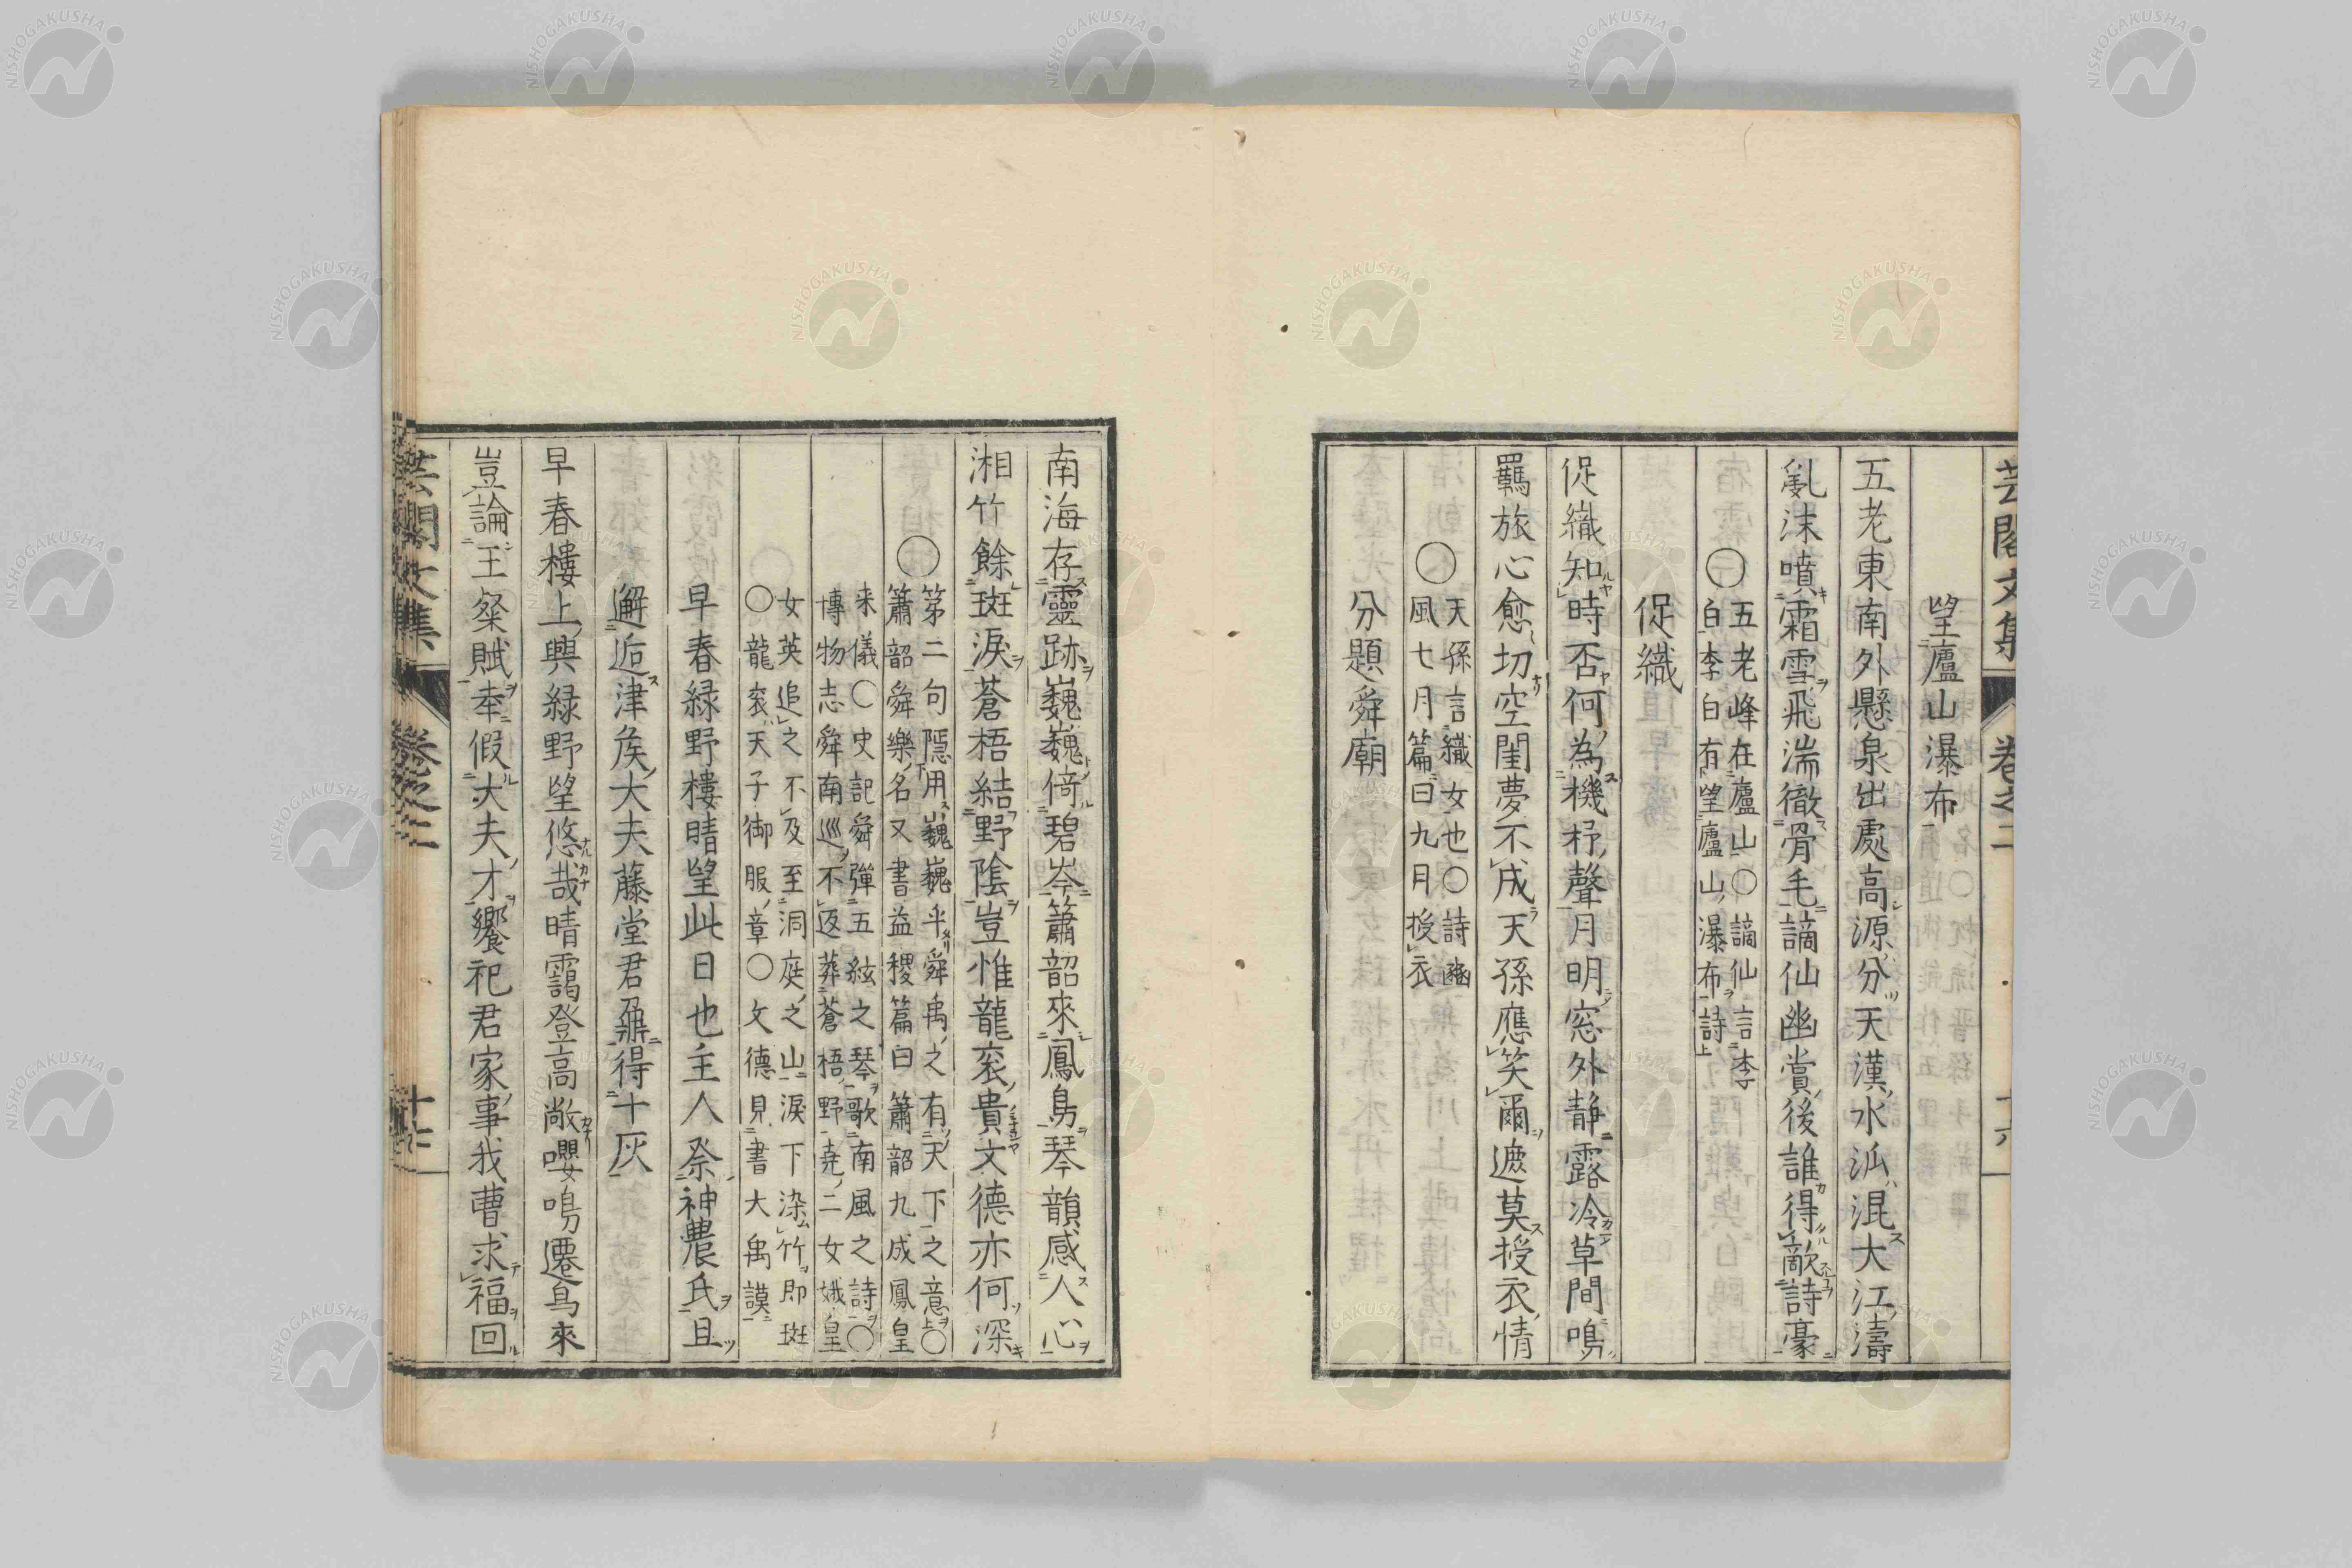 芸閣文集 卷之二 十六
望廬山瀑布
五老東南外懸泉出處高源分天漢水派混大江濤
亂沫噴霜雪飛湍徹骨毛謫仙幽賞後誰得敵詩豪
○五老峰在廬山○謫仙言李
白李白有望廬山瀑布詩
促織
促織知時否何為機杼聲月明窓外静露冷草間鳴
羈旅心愈切空閨夢不成天孫應笑爾遮莫授衣情
○天孫言織女也○詩豳
風七月篇曰九月授衣
分題舜廟
南海存靈跡巍巍倚碧岑簫韶來鳳鳥琴韻感人心
湘竹餘斑淚蒼梧結野陰豈惟龍衮貴文德亦何深
○第二句隱用巍巍乎舜禹之有天下之意○
簫韶舜樂名又書益稷篇曰簫韶九成鳳皇
来儀○史記舜彈五絃之琴歌南風之詩○
博物志舜南巡不返葬蒼梧野堯二女娥皇
女英追之不及至洞庭之山淚下染竹即斑
○龍衮天子御服章○文德見書大禹謨
早春緑野樓晴望此日也主人祭神農氏且
邂逅津矦大夫藤堂君鼐得十灰
早春樓上興緑野望悠哉晴靄登高敞嚶鳴遷鳥來
豈論王粲賦奉假大夫才饗祀君家事我曹求福回
芸閣文集 卷之二 十七